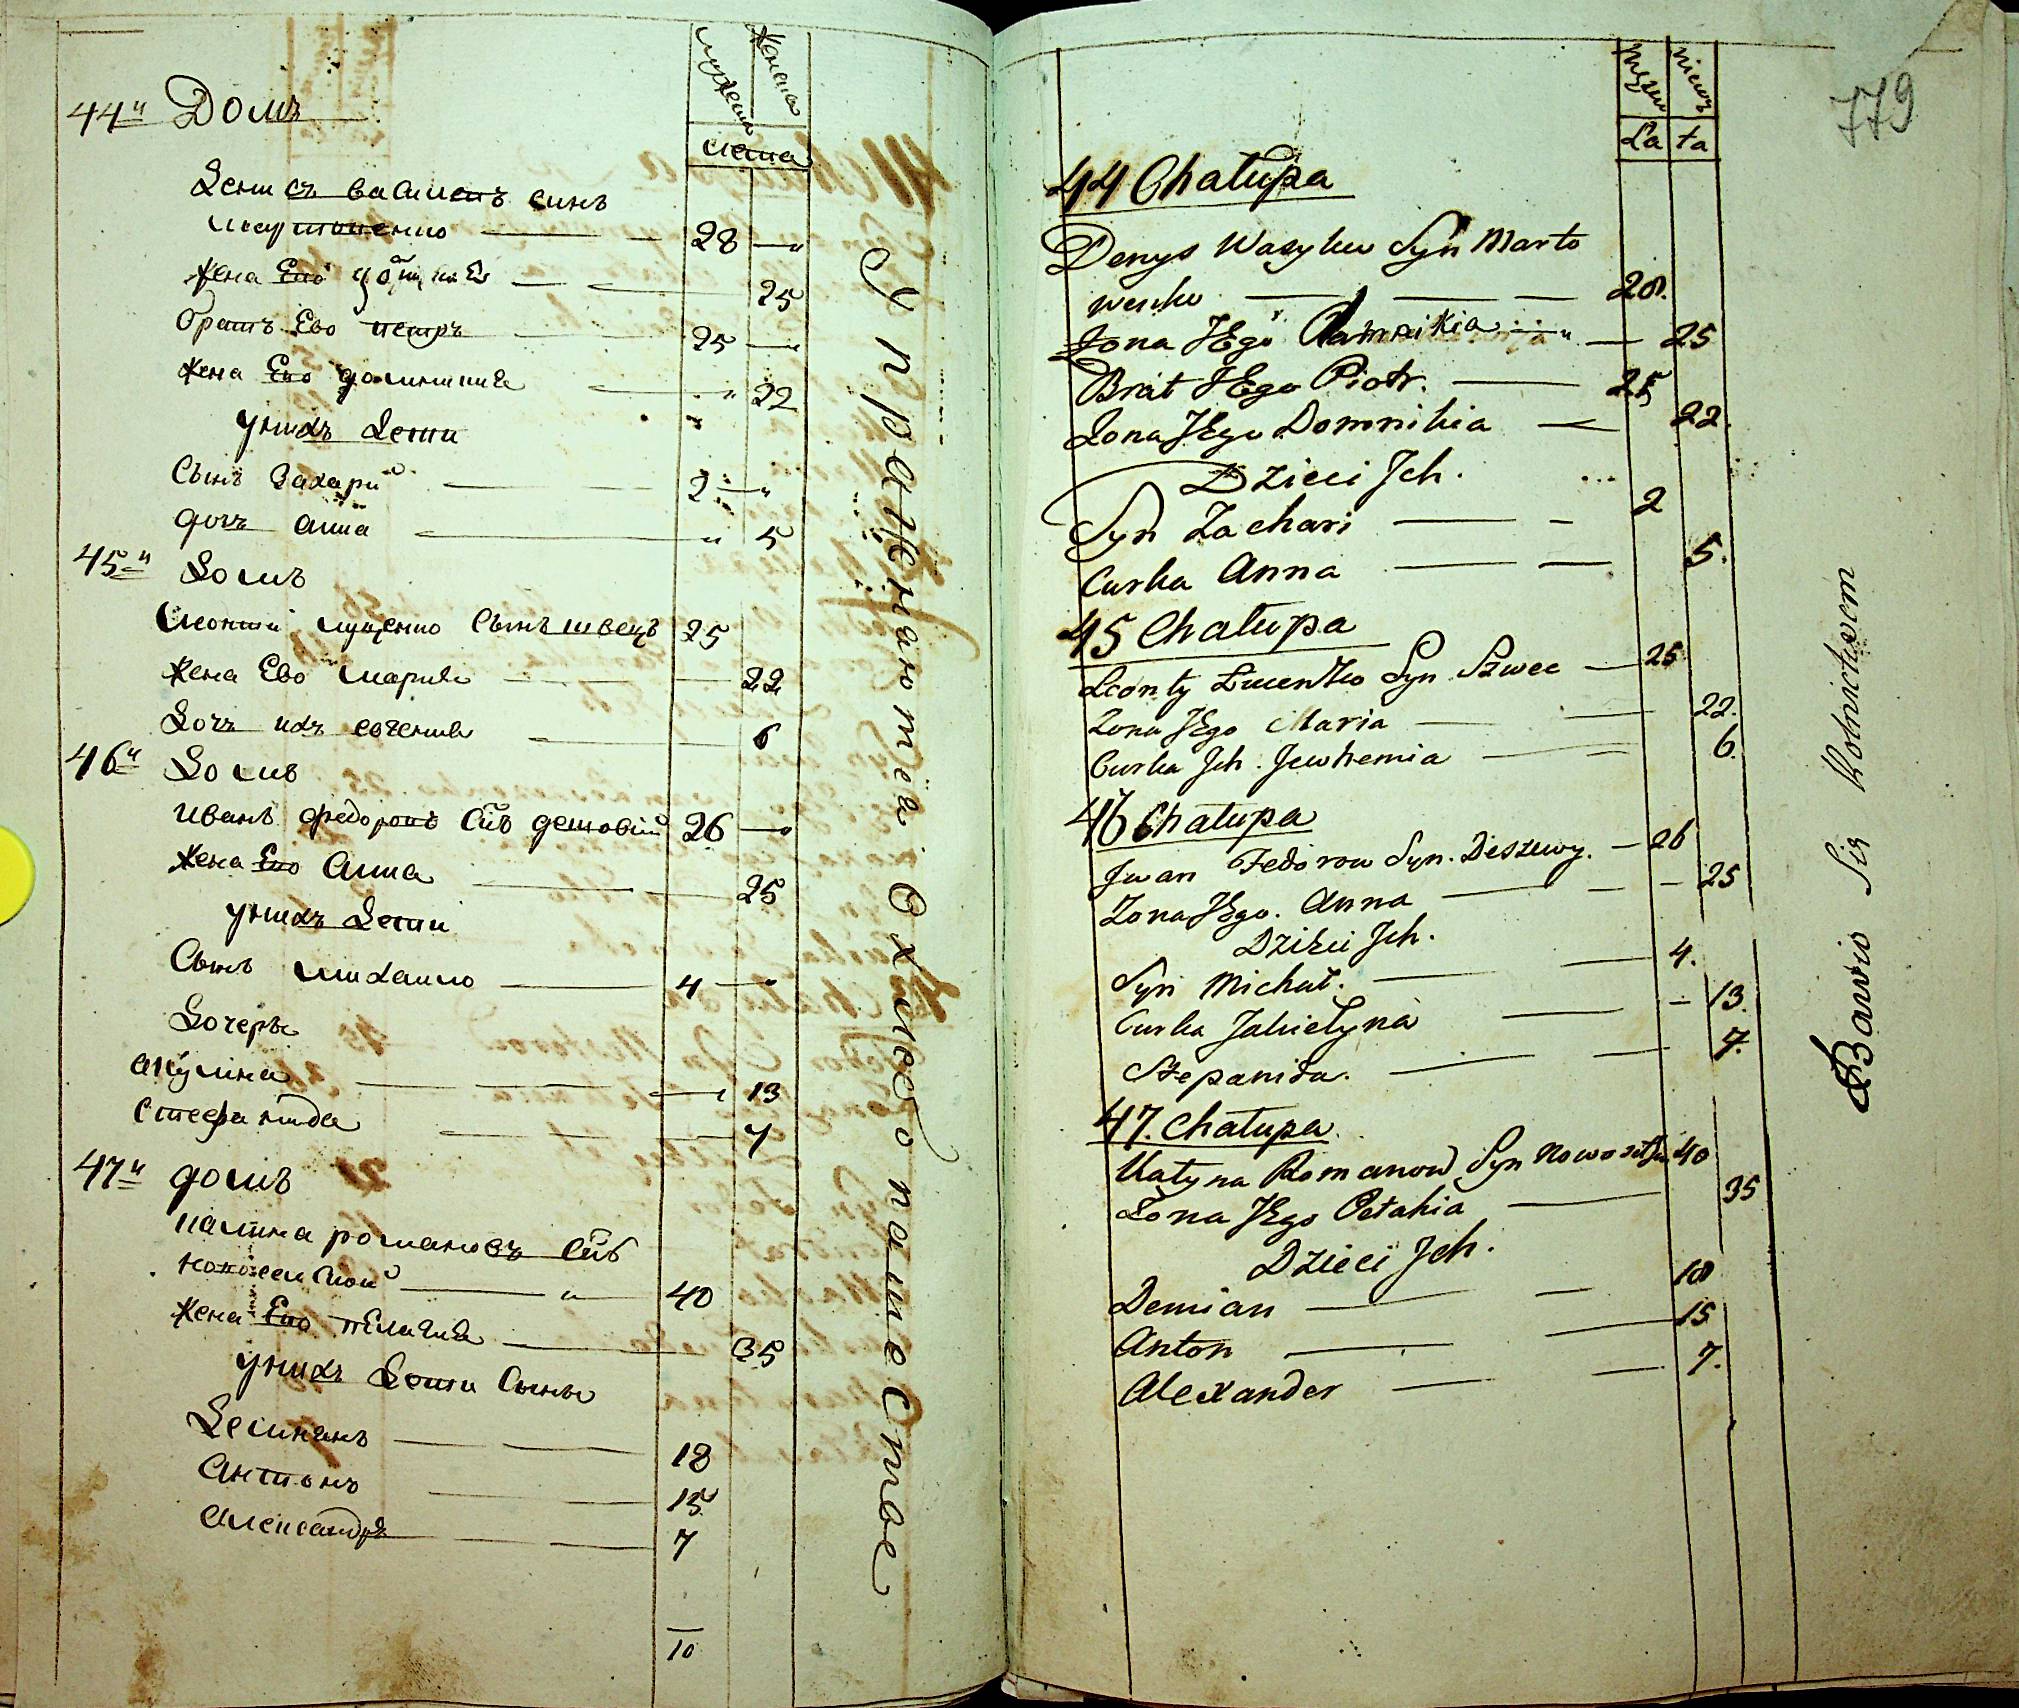 мужеска
женска
лета
44й Домъ
Денисъ василевъ синъ
мартовенко 28
жена Ево 25
братъ Ево петръ 25
жена Ево доминикия 22
унихъ Дети
Сынъ Захарий 2
дочъ анна 5
45й Домъ
Леонтий луценко Сынъ швецъ 25
жена Ево мария 22
Дочъ ихъ евгения 6
46й Домъ
иванъ федоровъ Снъ дешовий 26
жена Ево анна 25
унихъ Дети
Сынъ михаило 4
Дочеры
акулина 13
Стефанида 7
47й домъ
калина романовъ Снъ
новоселской 40
жена Ево пелагия 35
унихъ Дети Сыны
Демиянъ 18
Антонъ 15
александръ 7
10
Упражняются в Хлебопашестве
779
La ta
44 Chałupa
Denys Wasylew Syn Marto
wenko 28.
Żona JEgo 25
Brat JEgo Piotr. 25
Żona JEgo Domnikia 22.
Dzieci Jch.
Syn Zachari 2
Curka Anna 5.
45 Chałupa
Leonty Łucenko Syn Szwec 25
Żona JEgo Maria 22.
Curka Jch Jewhemia 6.
46 Chałupa
Jwan Fedorow Syn. Deszewy. 26
Żona JEgo. Anna 25
Dzieci Jch.
Syn Michał. 4.
Curka Jakielyna 13.
Stepanida. 7.
47. Chałupa
Kalyna Romanow Syn 40
Żona JEgo Pełahia 35
Dzieci Jch.
Demian 18
Anton 15
Alexander 7.
Bawio Się Rolnictwem